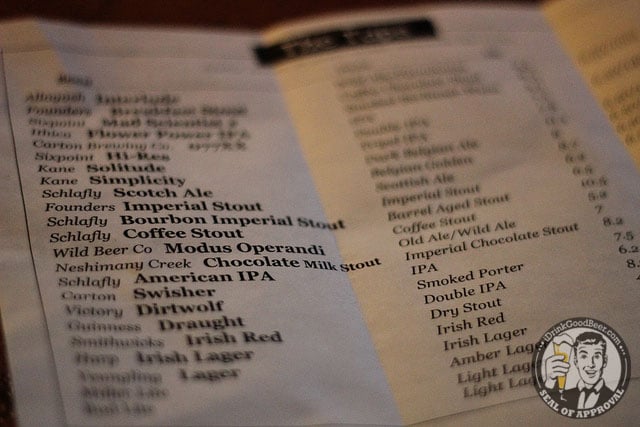 The Taps
Beer
Allagash Interlude
Founders Breakfast Stout
Sixpoint Mad Scientist
Ithaca Flower Power IPA
Carton Brewing Co. 077XX
Sixpoint Hi-Res
Kane Solitude
Kane Simplicity
Schlafly Scotch Ale
Founders Imperial Stout
Schlafly Bourbon Imperial Stout
Schlafly Coffee Stout
Wild Beer Co Modus Operandi
Neshimany Creek Chocolate Milk Stout
Schlafly American IPA
Carton Swisher
Victory Dirtwolf
Guinness Draught
Smithwicks Irish Red
Harp Irish Lager
Yeungling Lager
Miller Lite
Bud Lite
Double IPA
Tripel IPA
Dark Belgian Ale
Belgian Golden
Scottish Ale
Imperial Stout
Barrel Aged Stout 10.5
Coffee Stout
Old Ale/Wild Ale 7
Imperial Chocolate Stout 8.2
IPA 7.5
Smoked Porter 6.2
Double IPA
Dry Stout
Irish Red
Irish Lager
Amber Lager
Light Lag
Light Lag
DrinkGoodBeer.com
SEAL OF APPROVAL